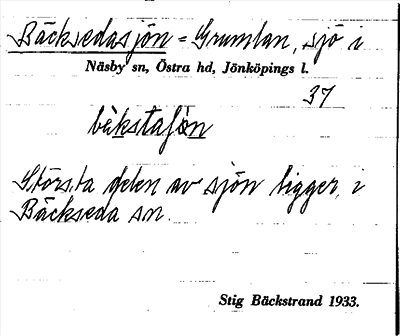 Bäcksedasjön = Grumlan, sjö i
Näsby sn, Östra hd, Jönköpings l.
37
bäkstasjön
Största delen av sjön ligger i
Bäckseda sn.
Stig Bäckstrand 1933.